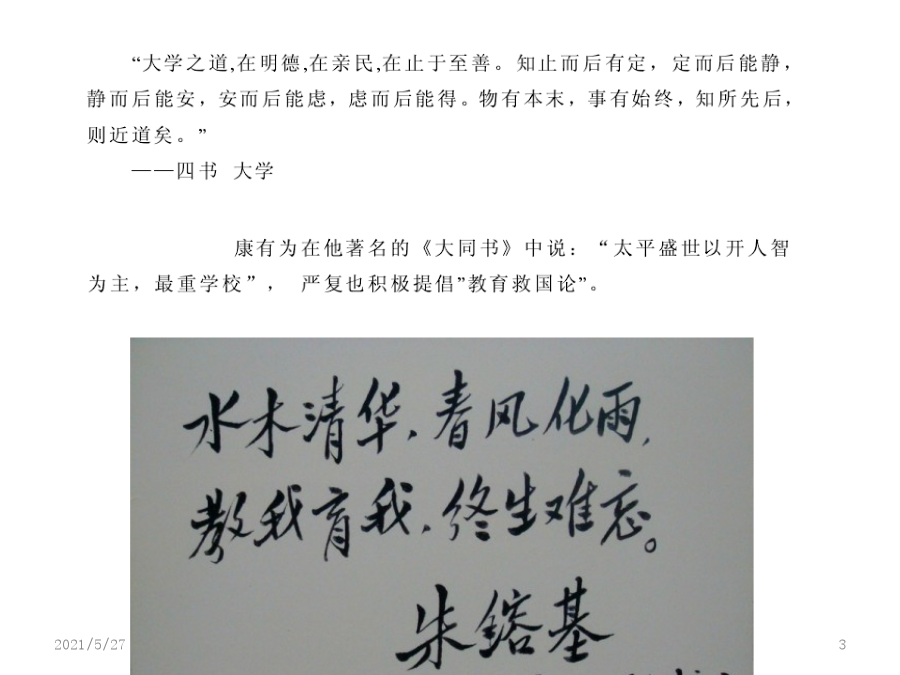 “大学之道,在明德,在亲民,在止于至善。知止而后有定，定而后能静，
静而后能安，安而后能虑，虑而后能得。物有本末，事有始终，知所先后，
则近道矣。”
——四书  大学
康有为在他著名的《大同书》中说：“太平盛世以开人智
为主，最重学校”，  严复也积极提倡”教育救国论”。
水木清华，春风化雨，
教我育我，终生难忘。
朱鎔基
2021/5/27
3